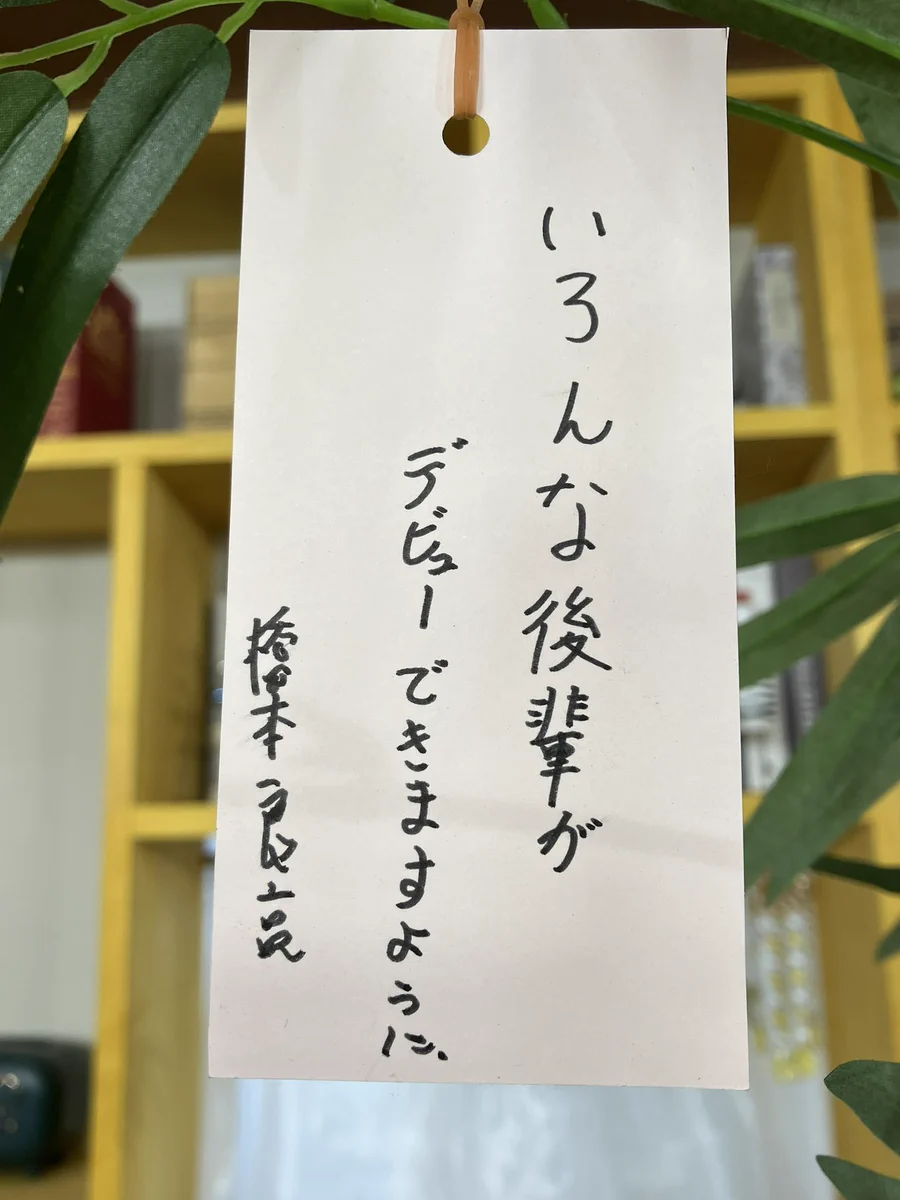 いろんな後輩が
デビューできますように、
橋本良亮